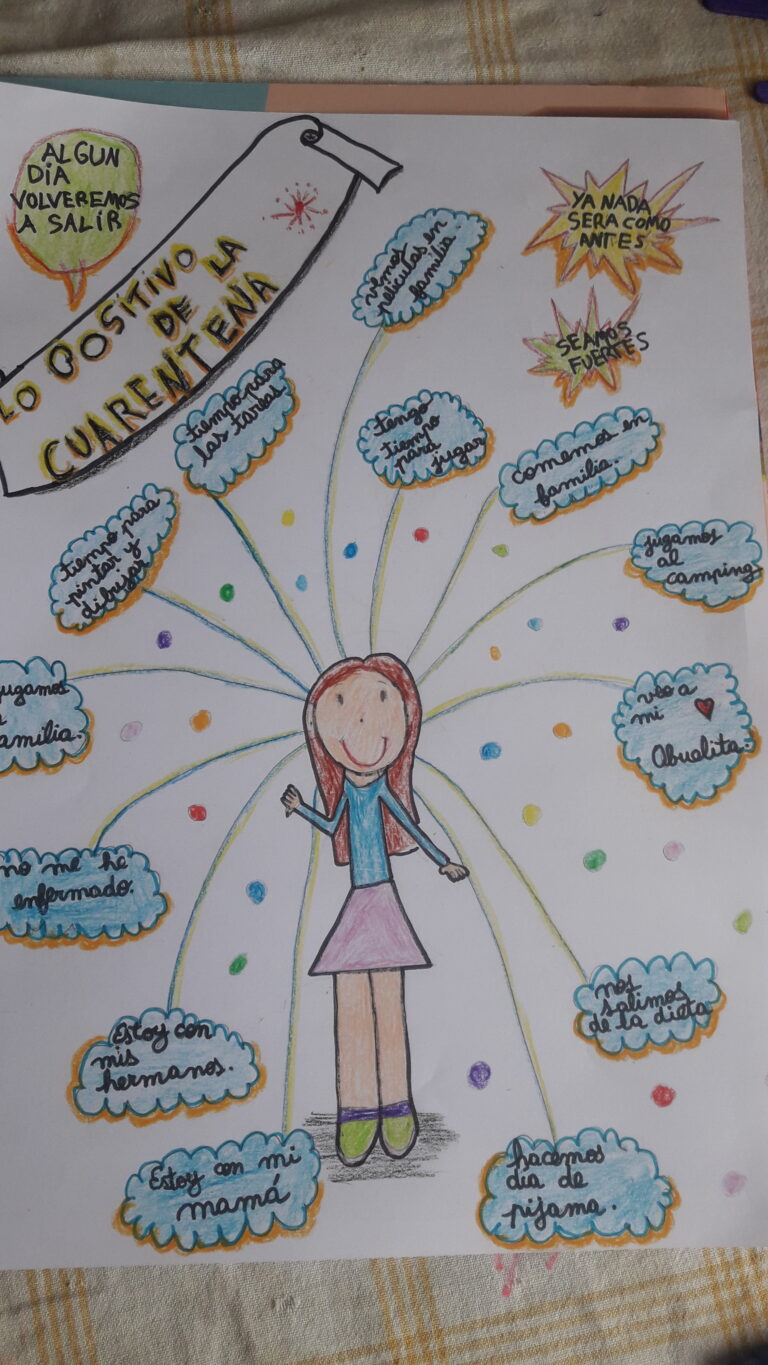 ALGUN
DIA
VOLVEREMOS
A SALIR
LO POSITIVO
DE LA
CUARENTENA
YA NADA
SERA COMO
ANTES
SEAMOS
FUERTES
vemos
peliculas en
familia.
tiempo para
las tareas
tengo
tiempo
para
jugar
comemos en
familia.
tiempo para
pintar y
dibujar
jugamos
al
camping
jugamos
familia.
veo a
mi
Abuelita.
no me he
enfermado.
nos
salimos
de la dieta
Estoy con
mis
hermanos.
Estoy con mi
mamá
hacemos
dia de
pijama.